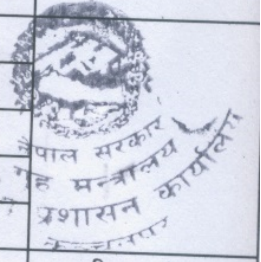 पाल सरकार
ह मन्त्रालय
प्रशासन कार्यालय